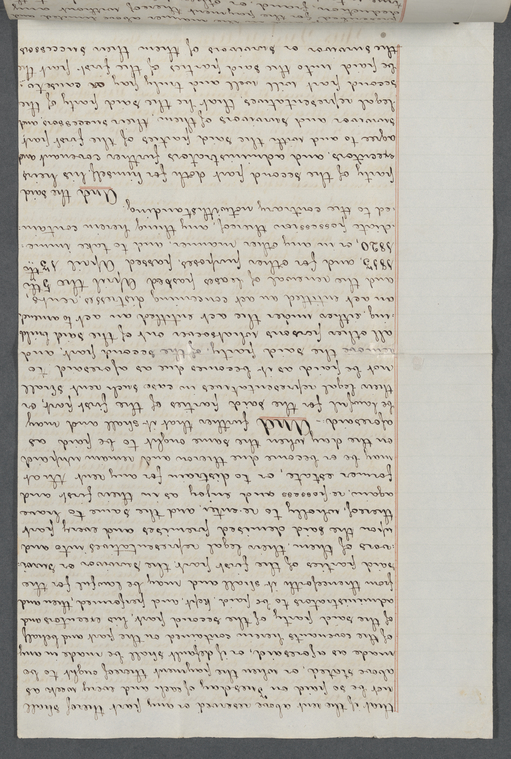 that if the rent above reserved or any part thereof shall
not be so paid on Tuesday of each and every week as
above stated, or when the payment thereof ought to be
made as aforesaid, or if default shall be made in any
of the covenants herein contained on the part and behalf
of the said party of the second part, his executors
administrators to be paid, kept, and performed, then and
from thenceforth it shall and may be lawful for the
said parties of the first part, the survivor or survi-
vors of them, their legal representatives, into and
upon the said demised premises and every part
thereof, wholly to re-enter, and the same to have
again, re-possess and enjoy as in their first and
former estate, or to distrain for any rent that
may be or become due thereon and remain unpaid
on the day when the same ought to be paid as
aforesaid. And further that it shall and may
be lawful for the said parties of the first part, or
their legal representatives in case such rent shall
not be paid as it becomes due as aforesaid to
remove the said party of the second part, and
all other persons whatsoever out of the said build
ing, either under the act entitled an act to amend
an act entitled an act concerning distresses, rents,
and the renewal of leases passed April the 5th
1813, and for other purposes passed April 13th
1820, or in any other manner, and to take imme-
diate possession thereof, any thing herein contain-
ed to the contrary notwithstanding
And the said
party of the second part doth for himself, his heirs
executors and administrators further covenant and
agree to and with the said parties of the first part
survivor and survivors of them, their successors and
legal representatives that he the said party of the
second part will well and truly pay or cause to
be paid unto the said parties of the first part the
the survivor or survivors of them their successors